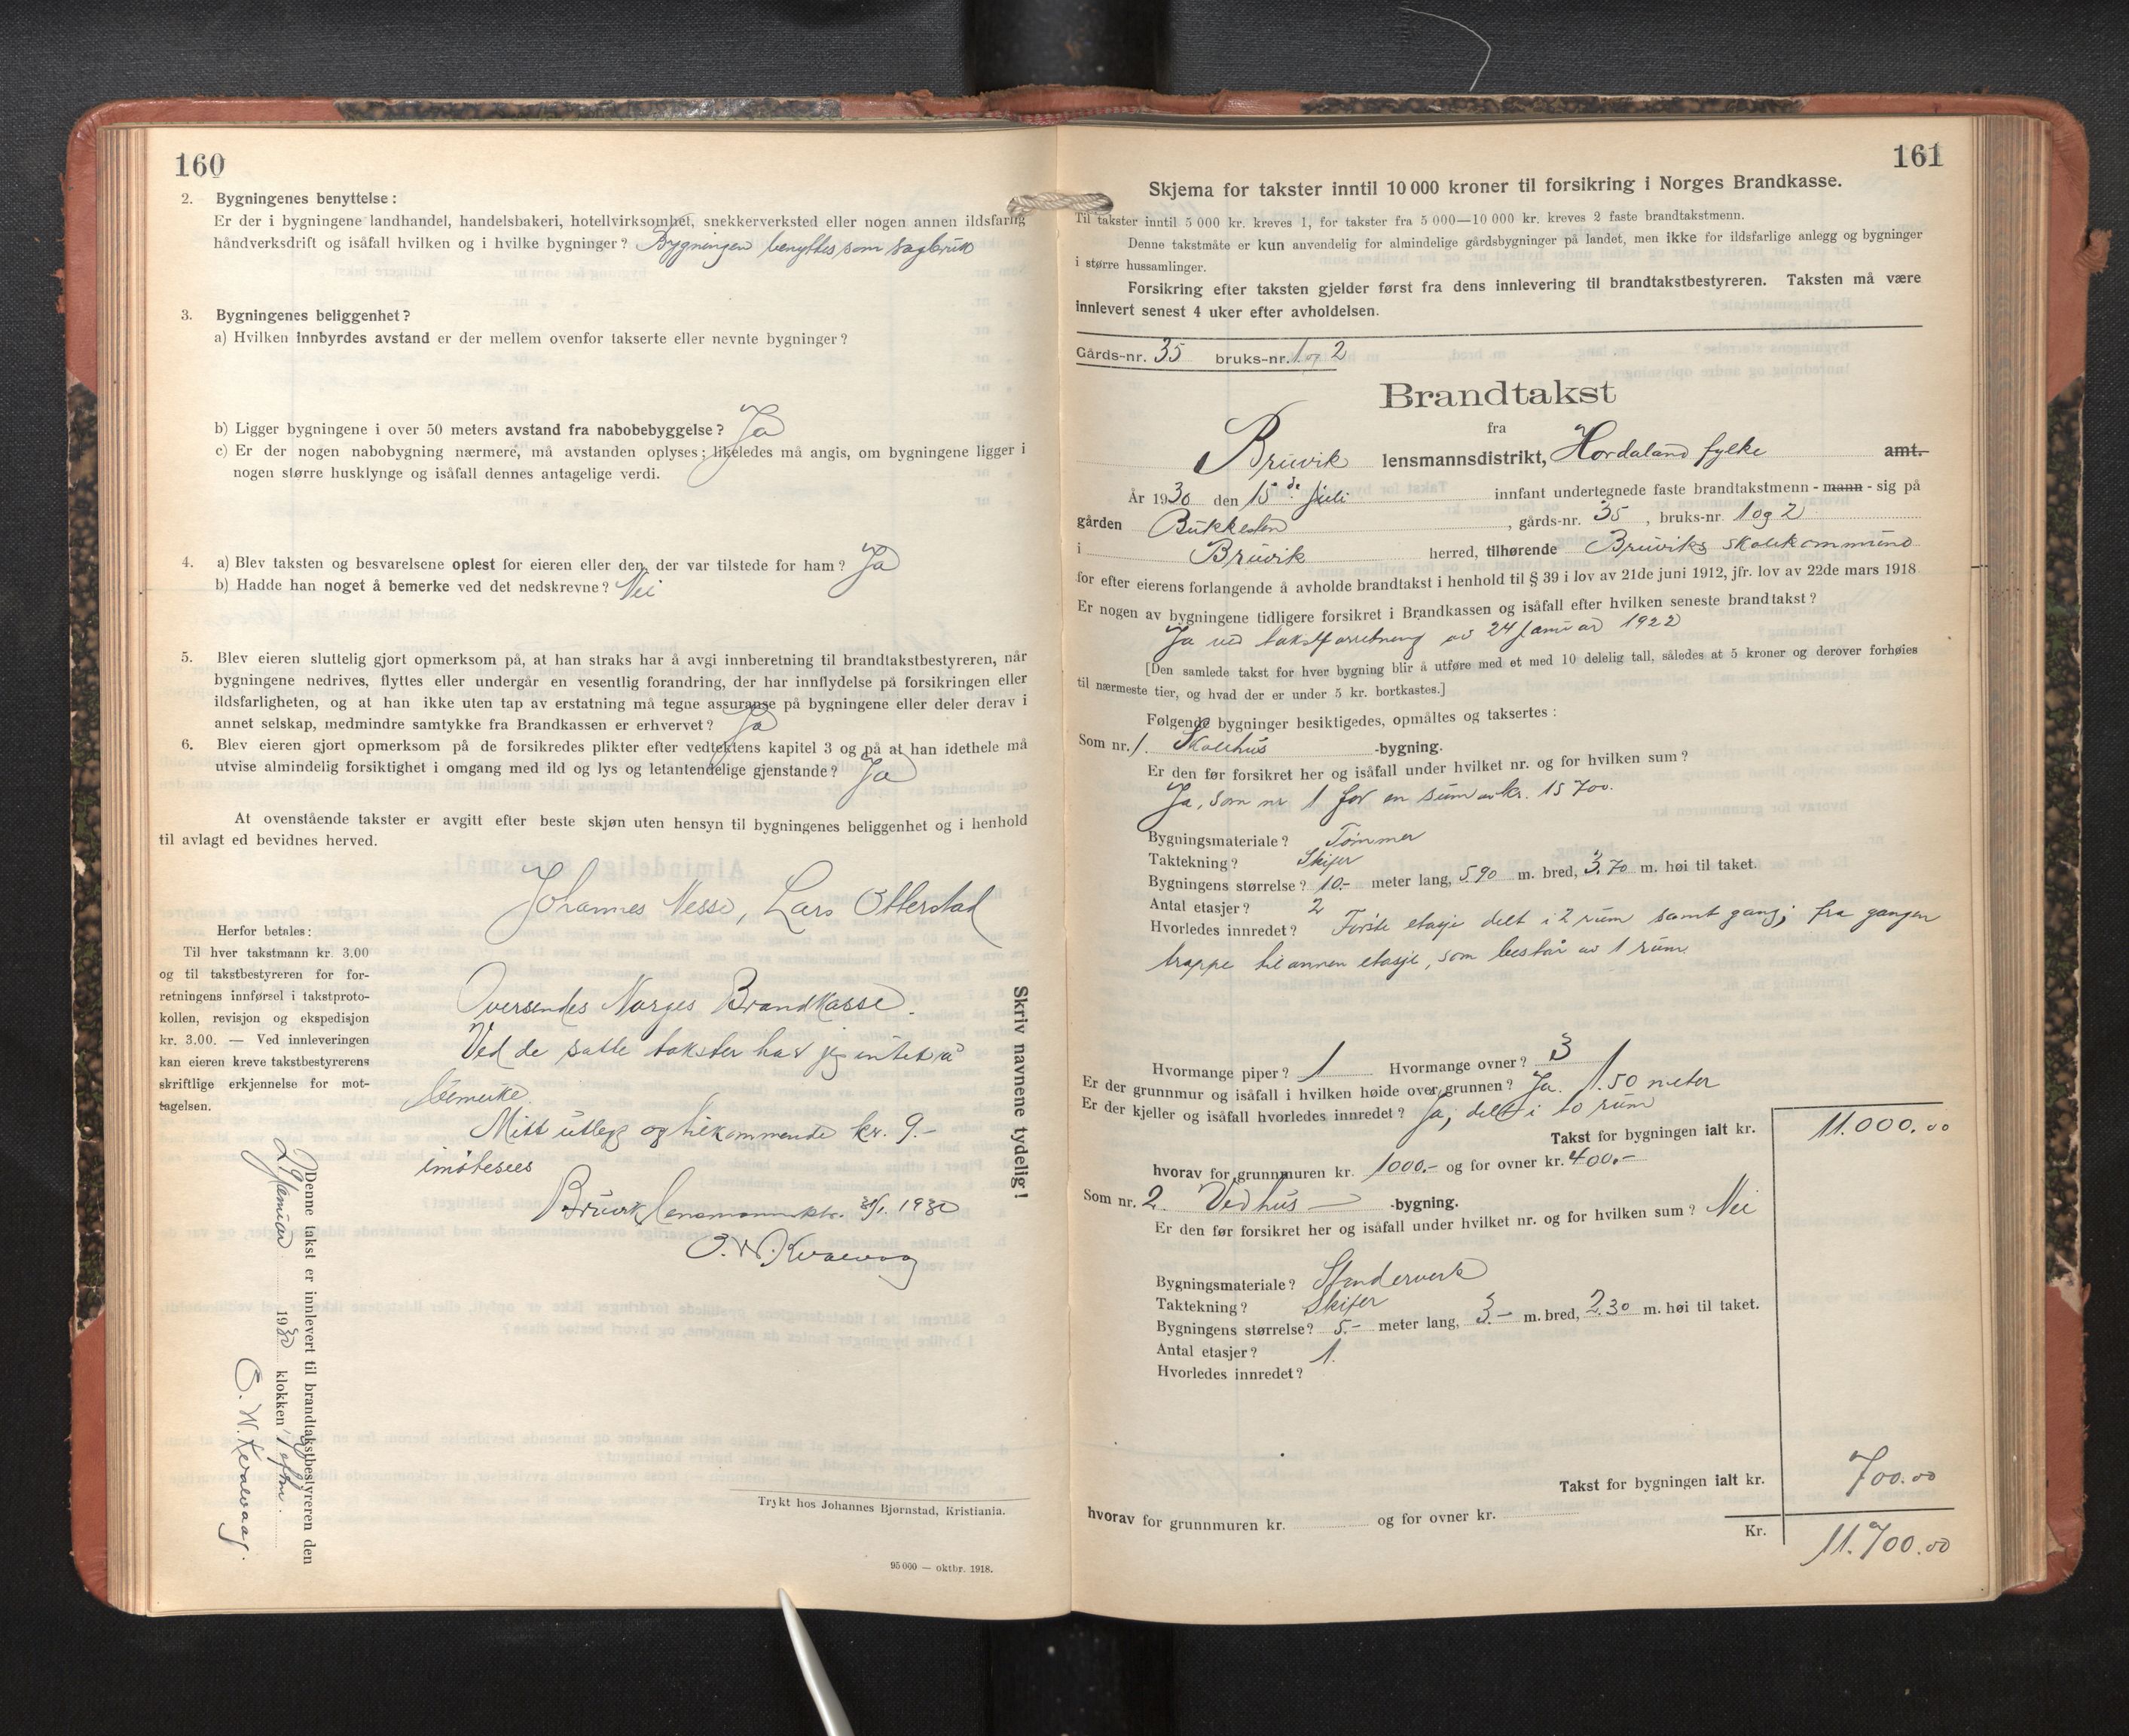 160
2. Bygningenes benyttelse:
Er der i bygningene landhandel, handelsbakeri, hotellvirksomhet, snekkerverksted eller nogen annen ildsfarlig
håndverksdrift og isåfall hvilken og i hvilke bygninger? Bygningen benyttes som sagbruk
3. Bygningenes beliggenhet?
a) Hvilken innbyrdes avstand er der mellem ovenfor takserte eller nevnte bygninger?
b) Ligger bygningene i over 50 meters avstand fra nabobebyggelse? Ja
c) Er der nogen nabobygning nærmere, må avstanden oplyses; likeledes må angis, om bygningene ligger i
nogen større husklynge og isåfall dennes antagelige verdi.
4. a) Blev taksten og besvarelsene oplest for eieren eller den, der var tilstede for ham? Ja
b) Hadde han noget å bemerke ved det nedskrevne? Nei
5. Blev eieren sluttelig gjort opmerksom på, at han straks har å avgi innberetning til brandtakstbestyreren, når
bygningene nedrives, flyttes eller undergår en vesentlig forandring, der har innflydelse på forsikringen eller
ildsfarligheten, og at han ikke uten tap av erstatning må tegne assuranse på bygningene eller deler derav i
annet selskap, medmindre samtykke fra Brandkassen er erhvervet? Ja
6. Blev eieren gjort opmerksom på de forsikredes plikter efter vedtektens kapitel 3 og på at han idethele må
utvise almindelig forsiktighet i omgang med ild og lys og letantendelige gjenstande? Ja
At ovenstående takster er avgitt efter beste skjøn uten hensyn til bygningenes beliggenhet og i henhold
til avlagt ed bevidnes herved.
Johannes Nesse, Lars Otterstad
Herfor betales:
Til hver takstmann kr. 3.00
og til takstbestyreren for for-
retningens innførsel i takstproto-
kollen, revisjon og ekspedisjon
kr. 3.00. — Ved innleveringen
kan eieren kreve takstbestyrerens
skriftlige erkjennelse for mot-
tagelsen.
Oversendes Norges Brandkasse.
Ved de satte takster har jeg intet å
bemerke.
Mitt utlegg og tilkommende kr. 9.-
imøtesees
Bruvik lensmannsktr. 31/1. 1930
O. W. Kvalevaag
Skriv navnene tydelig!
Denne takst er innlevert til brandtakstbestyreren den
januar 1930 klokken 7 eftm.
O. W. Kvalevaag.
Trykt hos Johannes Bjørnstad, Kristiania.
95 000 — oktbr. 1918.
161
Skjema for takster inntil 10 000 kroner til forsikring i Norges Brandkasse.
Til takster inntil 5 000 kr. kreves 1, for takster fra 5 000—10 000 kr. kreves 2 faste brandtakstmenn.
Denne takstmåte er kun anvendelig for almindelige gårdsbygninger på landet, men ikke for ildsfarlige anlegg og bygninger
i større hussamlinger.
Forsikring efter taksten gjelder først fra dens innlevering til brandtakstbestyreren. Taksten må være
innlevert senest 4 uker efter avholdelsen.
Gårds-nr. 35 bruks-nr. 1 og 2
Brandtakst
fra
Bruvik lensmannsdistrikt, Hordaland fylke amt.
År 1930 den 15de juli innfant undertegnede faste brandtakstmenn - mann - sig på
gården Bukkesten, gårds-nr. 35, bruks-nr. 1 og 2
i Bruvik herred, tilhørende Bruviks skolekommune
for efter eierens forlangende å avholde brandtakst i henhold til § 39 i lov av 21de juni 1912, jfr. lov av 22de mars 1918
Er nogen av bygningene tidligere forsikret i Brandkassen og isåfall efter hvilken seneste brandtakst?
Ja ved takstforretning av 24 januar 1922
[Den samlede takst for hver bygning blir å utføre med et med 10 delelig tall, således at 5 kroner og derover forhøies
til nærmeste tier, og hvad der er under 5 kr. bortkastes.]
Følgende bygninger besiktigedes, opmåltes og taksertes:
Som nr. 1. Skolehus -bygning.
Er den før forsikret her og isåfall under hvilket nr. og for hvilken sum?
Ja, som nr 1 for en sum av kr. 15 700.
Bygningsmateriale? Tømmer
Taktekning? Skifer
Bygningens størrelse? 10.- meter lang, 5.90 m. bred, 3.70 m. høi til taket.
Antal etasjer? 2
Hvorledes innredet? Første etasje delt i 2 rum samt gang; fra gangen
trappe til annen etasje, som består av 1 rum.
Hvormange piper? 1 Hvormange ovner? 3
Er der grunnmur og isåfall i hvilken høide over grunnen? Ja. 1.50 meter
Er der kjeller og isåfall hvorledes innredet? Ja, delt i to rum
Takst for bygningen ialt kr. 11.000.00
hvorav for grunnmuren kr. 1000.- og for ovner kr. 400.-
Som nr. 2. Vedhus -bygning.
Er den før forsikret her og isåfall under hvilket nr. og for hvilken sum? Nei
Bygningsmateriale? Stenderverk
Taktekning? Skifer
Bygningens størrelse? 5.- meter lang, 3.- m. bred, 2.30 m. høi til taket.
Antal etasjer? 1.
Hvorledes innredet?
Takst for bygningen ialt kr. 700.00
hvorav for grunnmuren kr. og for ovner kr.
Kr. 11.700.00